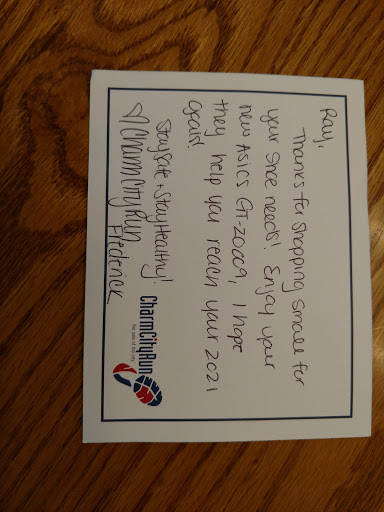 Ray,
Thanks for shopping small for
your shoe needs! Enjoy your
new ASICS GT-2000 9, I hope
they help you reach your 2021
goals!
Stay Safe + Stay Healthy!
CharmCityRun
Frederick
CharmCityRun
the sole of the city